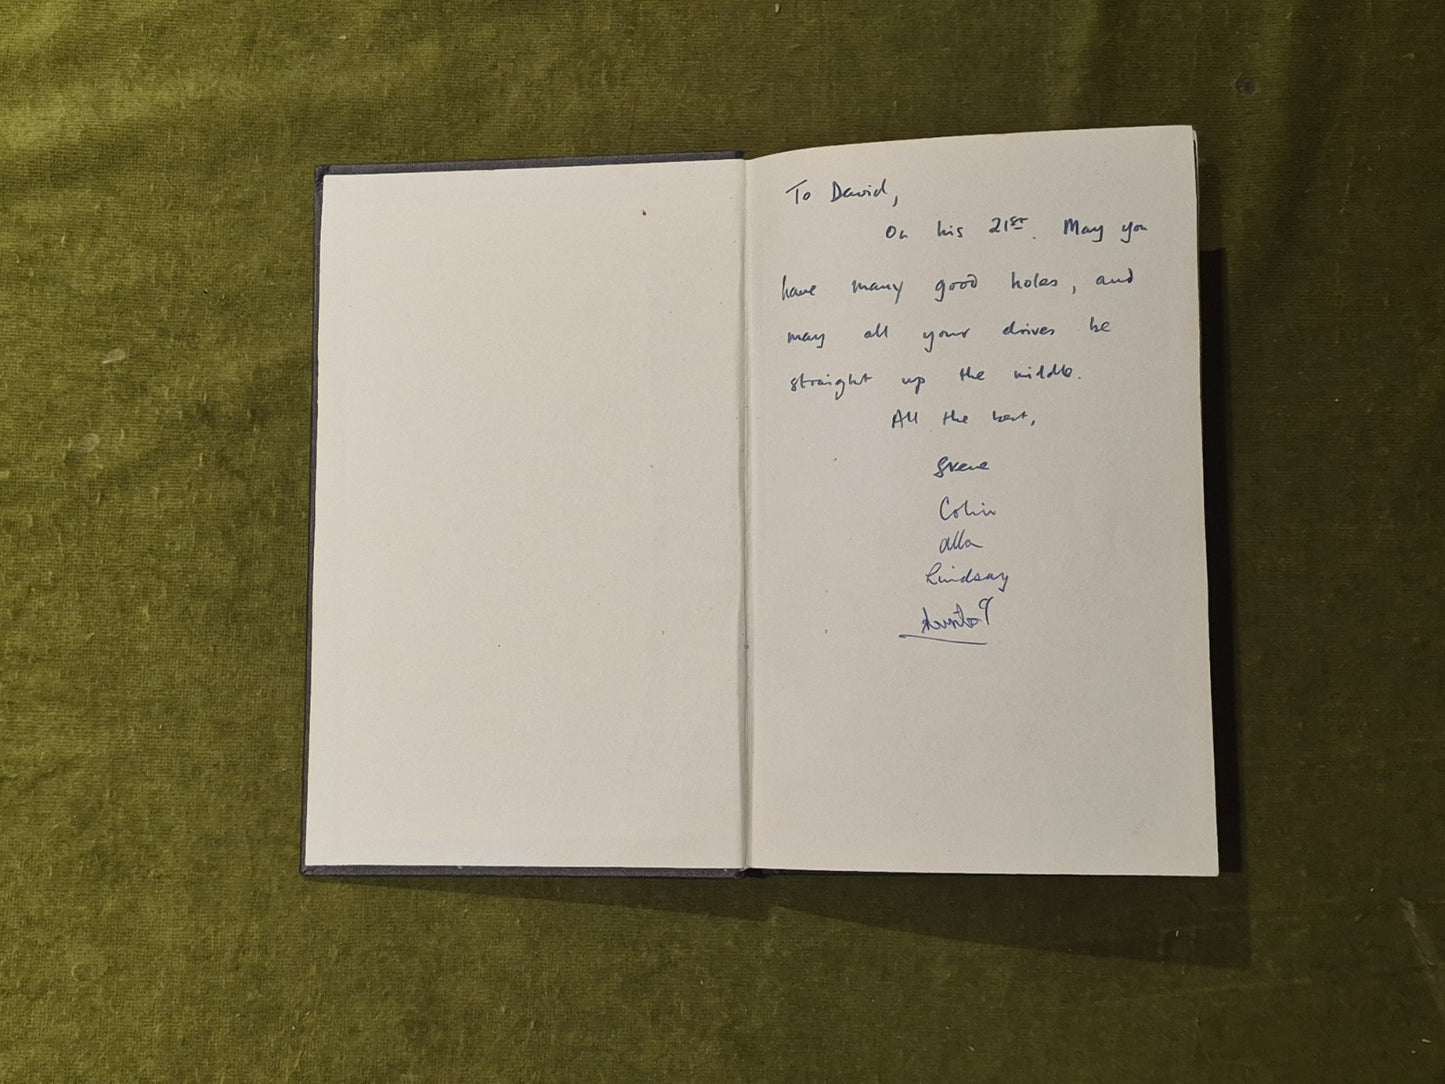 To David,
On his 21st. May you
have many good holes, and
may all your drives be
straight up the middle.
All the best,
Steve
Colin
Lindsay